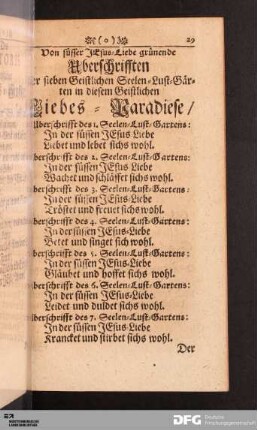 (o) 29
Von süsser JEsus-Liebe grünende
Uberschrifften
er sieben Geistlichen Seelen-Lust-Gär-
ten in diesem Geistlichen
Liebes-Paradiese/
Uberschrifft des 1. Seelen-Lust-Gartens:
In der süssen JEsus Liebe
Liebet und lebet sichs wohl.
berschrifft des 2. Seelen-Lust-Gartens:
In der süssen JEsus Liebe
Wachet und schläffet sichs wohl.
berschrifft des 3. Seelen-Lust-Gartens:
In der süssen JEsus-Liebe
Tröstet und freuet sichs wohl.
berschrifft des 4. Seelen-Lust-Gartens:
In der süssen JEsus-Liebe
Betet und singet sich wohl.
berschrifft des 5. Seelen-Lust-Gartens:
In der süssen JEsus-Liebe
Gläubet und hoffet sichs wohl.
berschrifft des 6. Seelen-Lust-Gartens:
In der süssen JEsus-Liebe
Leidet und duldet sichs wohl.
berschrifft des 7. Seelen-Lust-Gartens:
In der süssen JEsus-Liebe
Krancket und stirbet sichs wohl.
Der
DFG Deutsche
Forschungsgemeinschaft